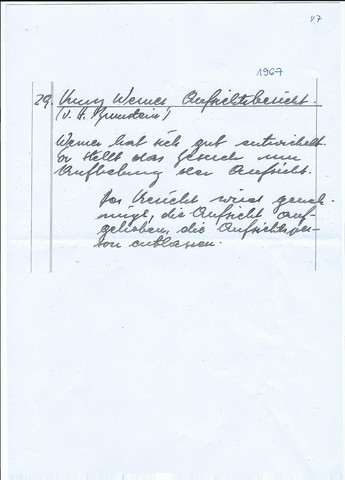 V7
1967
29. Kunz Werner Aufsichtsbericht.
(v. H. Brunstein)
Werner hat sich gut entwickelt.
Er stellt das Gesuch um
Aufhebung der Aufsicht.
Der Bericht wird geneh-
migt, die Aufsicht auf-
gehoben, die Aufsichtsper-
son entlassen.